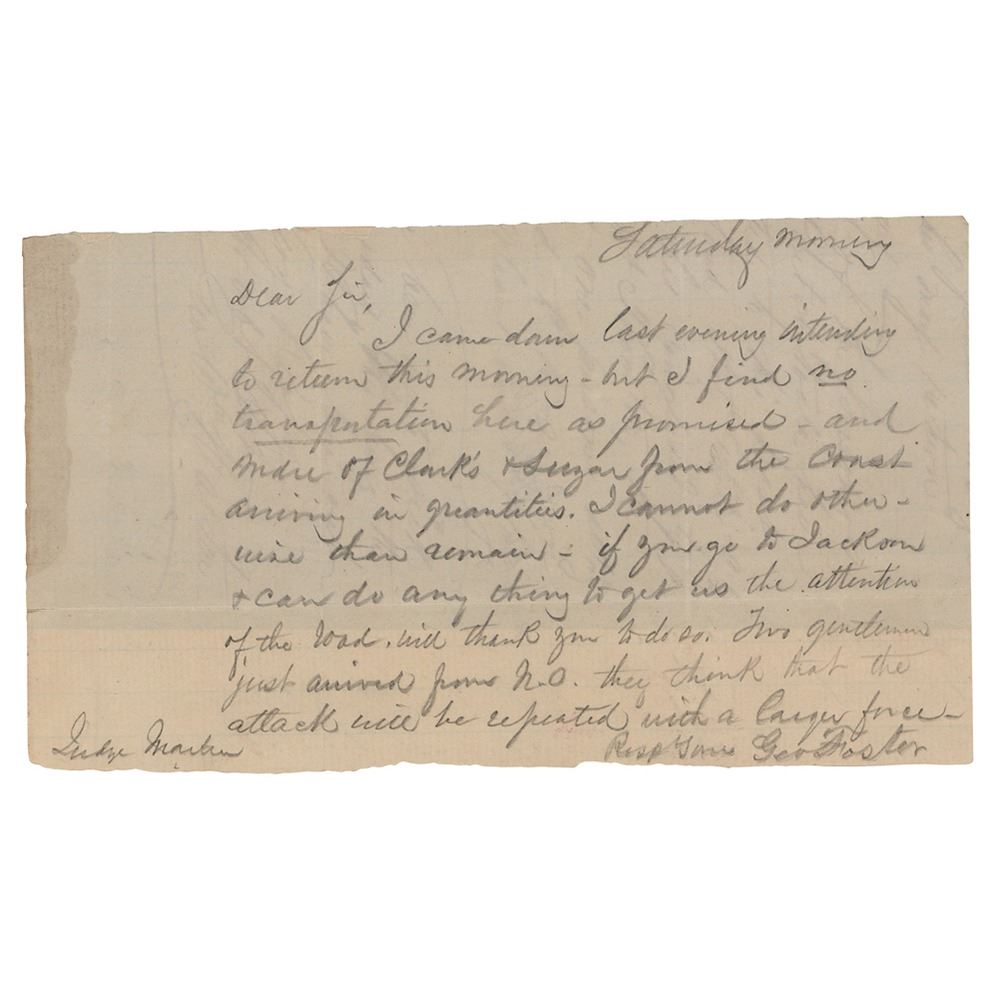 Saturday Morning
Dear Sir,
I came down last evening intending
to return this morning - but I find no
transportation here as promised - and
more of Clark's & Sugar from the Coast
arriving in quantities. I cannot do other-
wise than remain - if you go to Jackson
& can do any thing to get us the attention
of the Road. will thank you to do so. Two gentlemen
just arrived from N.O. they think that the
attack will be repeated with a larger force -
Judge
Resp Yours Geo Foster